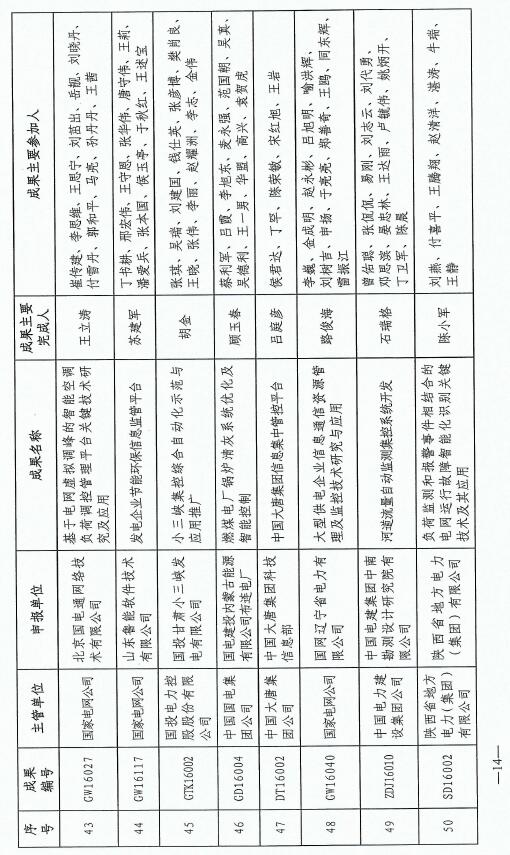 序号 成果编号 主管单位 申报单位 成果名称 成果主要完成人 成果主要参加人
43 GW16027 国家电网公司 北京国电通网络技术有限公司 基于电网虚拟调峰的智能空调负荷调控管理平台关键技术研究及应用 王立涛 崔传建、李思维、王思宁、刘茁出、岳靓、刘晓丹、付雪丹、郭和平、马亮、孙丹丹、王茜
44 GW16117 国家电网公司 山东鲁能软件技术有限公司 发电企业节能环保信息监管平台 苏建军 丁书耕、邢宏伟、王守恩、张华伟、唐守伟、王莉、潘爱兵、张本国、侯玉亭、于秋红、王述宝
45 GTK16002 国投电力控股股份有限公司 国投甘肃小三峡发电有限公司 小三峡集控综合自动化示范与应用推广 胡金 张琪、吴瑞、刘建国、钱仕英、张彦博、樊肖良、王晓、张伟、李丽、赵耀洲、李志、金伟
46 GD16004 中国国电集团公司 国电建投内蒙古能源有限公司布连电厂 燃煤电厂锅炉清灰系统优化及智能控制 顾玉春 蔡利军、吕霞、李旭东、麦永强、范国朝、吴真、吴德利、王一男、华盟、高兴、袁贺虎
47 DT16002 中国大唐集团公司 中国大唐集团科技信息部 中国大唐集团信息集中管控平台 吕庭彦 侯君达、丁罕、陈荣敏、宋红旭、王岩
48 GW16040 国家电网公司 国网辽宁省电力有限公司 大型供电企业信息通信资源管理及监控技术研究与应用 路俊海 李巍、金成明、赵永彬、吕旭明、喻洪辉、刘树吉、申扬、于亮亮、郑善奇、王鸥、同东辉、雷振江
49 ZDJ16010 中国电力建设集团公司 中国电建集团中南勘测设计研究院有限公司 河道流量自动监测集控系统开发 石瑞格 曾佑聪、张侃侃、易刚、刘志云、刘代勇、邓思滨、晏忠林、王达雨、卢毓伟、姚炳开、丁卫军、陈晨
50 SD16002 陕西省地方电力（集团）有限公司 陕西省地方电力（集团）有限公司 负荷监测和报警事件相结合的电网运行故障智能化识别关键技术及其应用 陈小军 刘燕、付喜平、王腾翔、赵清洋、湛涛、牛瑞、王静
—14—